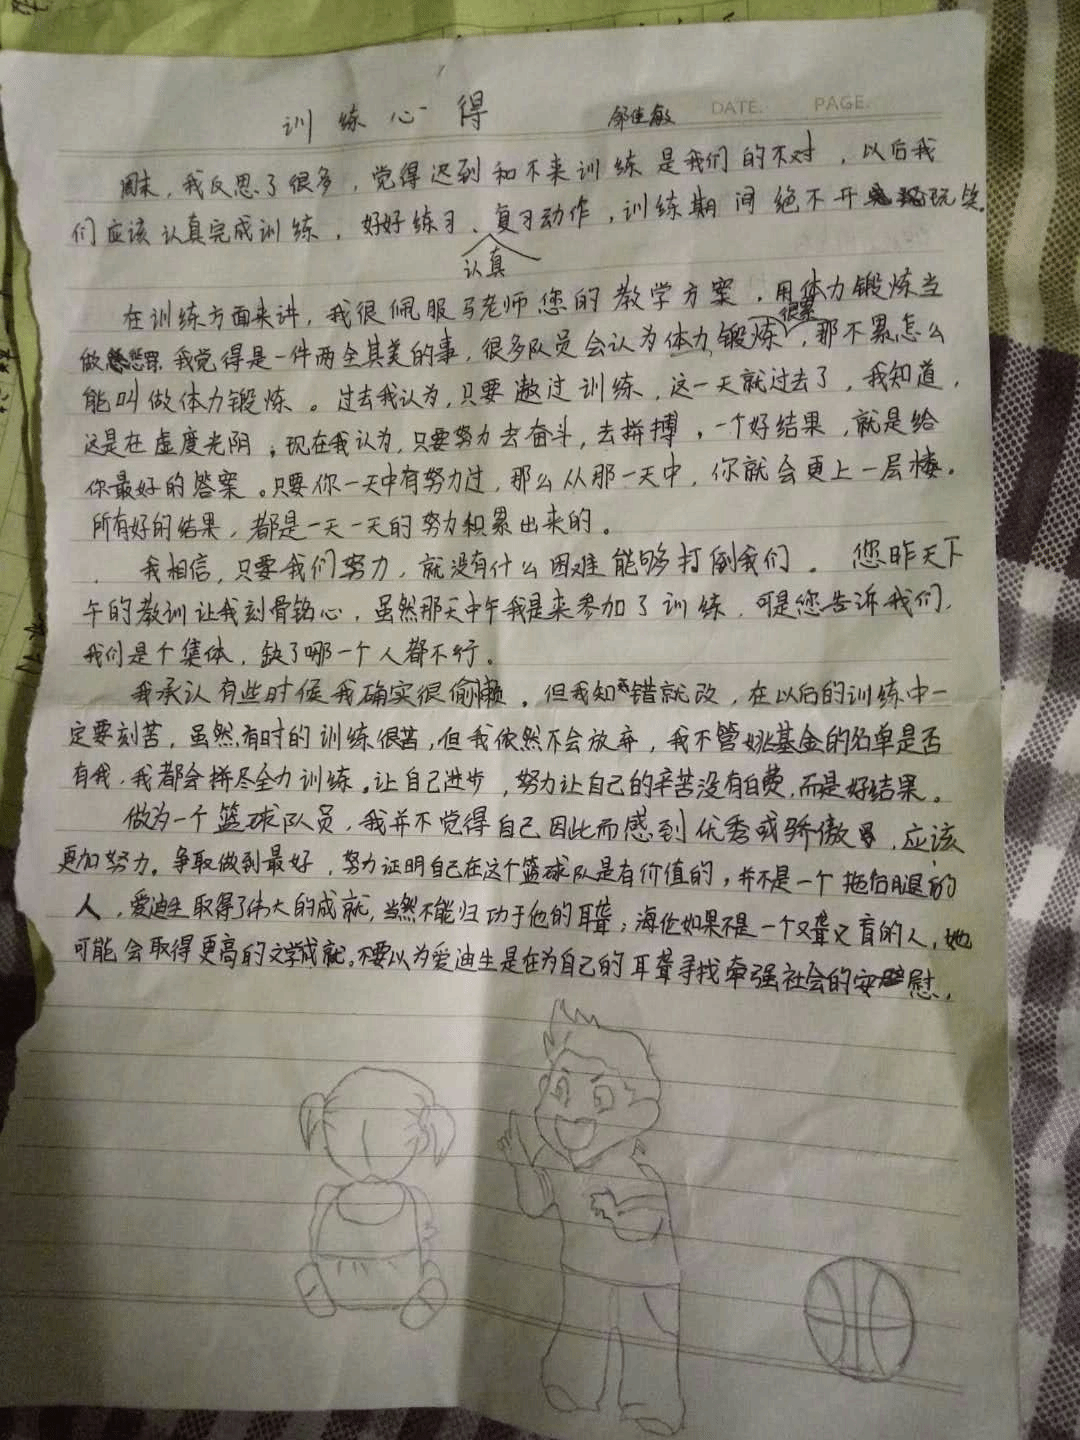 训练心得 邹佳敏 DATE. PAGE.
周末，我反思了很多，觉得迟到和不来训练是我们的不对，以后我
们应该认真完成训练，好好练习、复习动作，训练期间绝不开玩笑。
认真
在训练方面来讲，我很佩服马老师您的教学方案，用体力锻炼当
做惩罚，我觉得是一件两全其美的事，很多队员会认为体力锻炼很累，那不累怎么
能叫做体力锻炼。过去我认为，只要遨过训练，这一天就过去了，我知道，
这是在虚度光阴；现在我认为，只要努力去奋斗，去拼搏，一个好结果，就是给
你最好的答案。只要你一天中有努力过，那么从那一天中，你就会更上一层楼。
所有好的结果，都是一天一天的努力积累出来的。
我相信，只要我们努力，就没有什么困难能够打倒我们。您昨天下
午的教训让我刻骨铭心，虽然那天中午我是来参加了训练，可是您告诉我们，
我们是个集体，缺了哪一个人都不行。
我承认有些时候我确实很偷懒。但我知错就改，在以后的训练中一
定要刻苦，虽然有时的训练很苦，但我依然不会放弃，我不管姚基金的名单是否
有我，我都会拼尽全力训练。让自己进步，努力让自己的辛苦没有白费，而是好结果。
做为一个篮球队员，我并不觉得自己因此而感到优秀或骄傲，应该
更加努力。争取做到最好，努力证明自己在这个篮球队是有价值的，并不是一个拖后腿的
人，爱迪生取得了伟大的成就，当然不能归功于他的耳聋；海伦如果不是一个又聋又盲的人，她
可能会取得更高的文学成就。不要以为爱迪生是在为自己的耳聋寻找牵强社会的安慰，